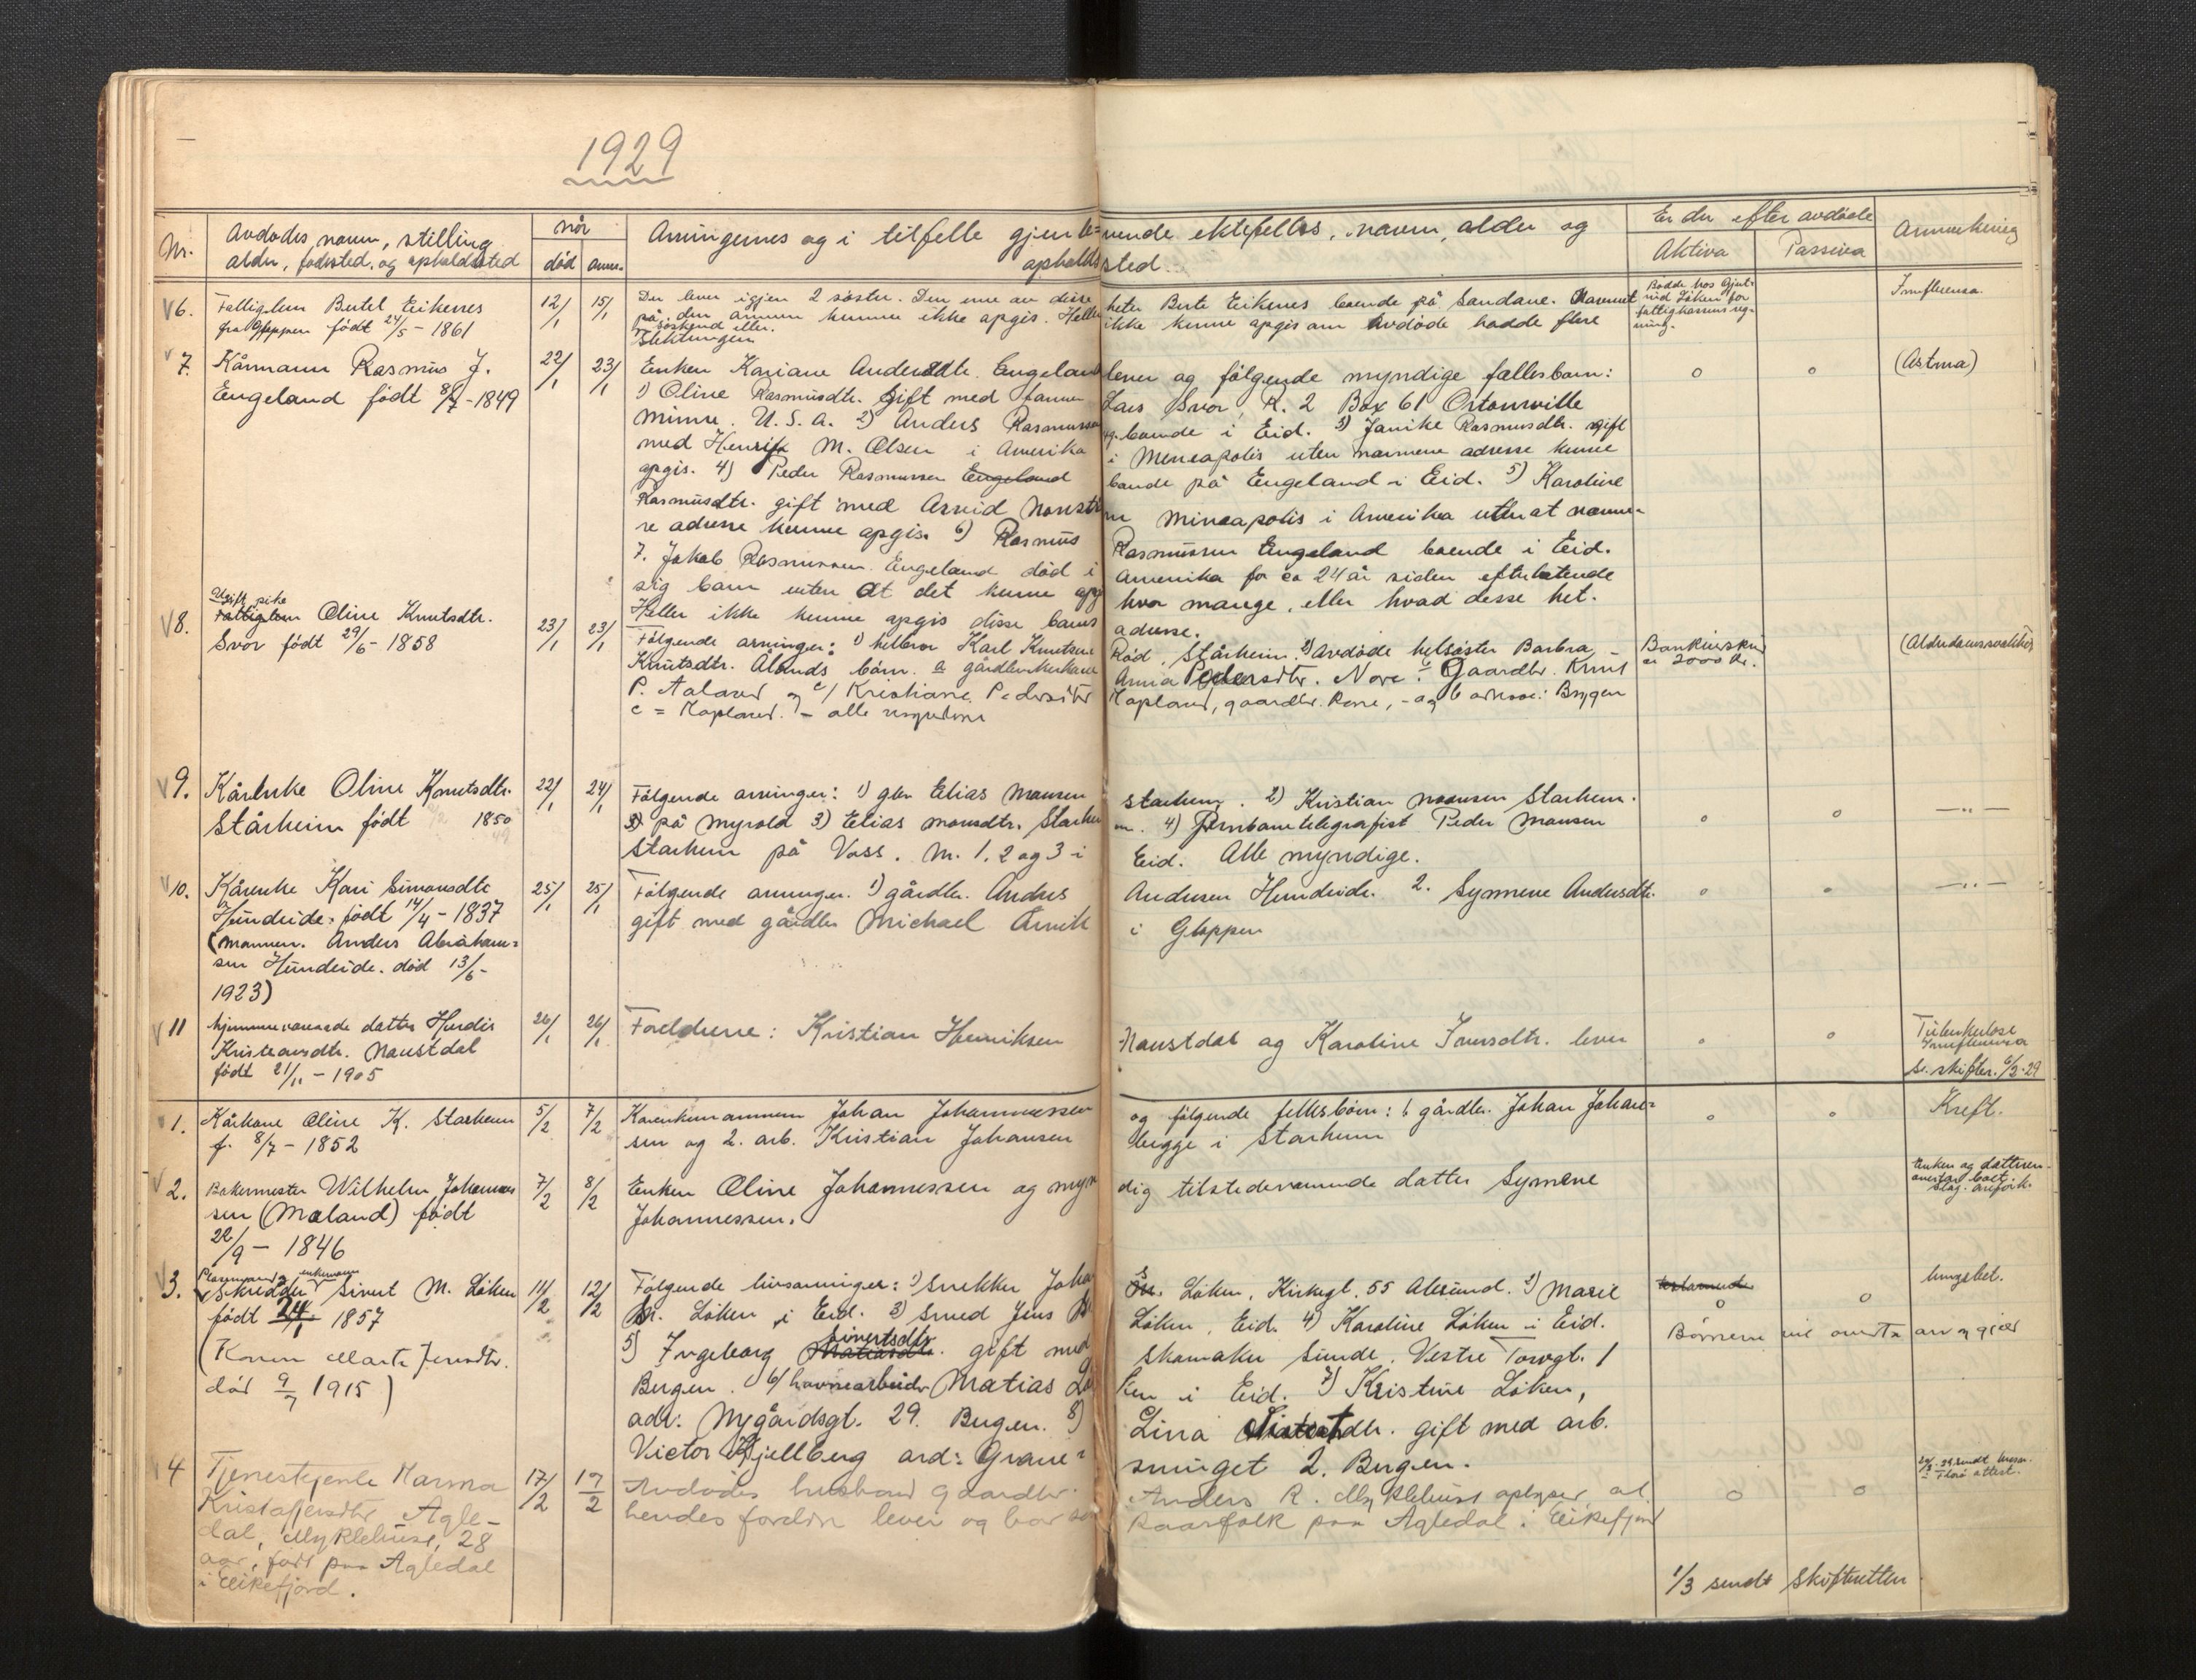 1929
Nr.
Avdødes, navn, stilling
alder, fødested, og opholdssted
når
død anm.
Arvingernes og i tilfelle gjenlevende ektefelles, navn, alder og
opholdssted.
Er der efter avdøde
Aktiva Passiva
Anmerkning
6. Fattiglem Bertel Eikenes
fra Gloppen født 24/5 - 1861
12/1 15/1
Der lever igjen 2 søstre. Den ene av disse heter Berte Eikenes boende på Sandane. Navnet
på den annen kunne ikke opgis. Heller ikke kunne opgis om avdøde hadde flere
søskend eller
slektninger
Bodde hos Gjert-
rud Løken for
fattigkassens reg-
ning.
Innfluensa.
7. Kårmann Rasmus J.
Engeland født 8/7 - 1849
22/1 23/1
Enken Kariane Andersdtr. Engeland lever og følgende myndige fællesbarn:
1) Oline Rasmusdtr. gift med farmer Lars Svor, R. 2 Box 61 Ortonville
Minne. U.S.A. 2) Anders Rasmussen boende i Eid. 3) Janike Rasmusdtr. gift
med Henrik M. Olsen i Amerika i Meneapolis uten nærmere adresse kunne
opgis. 4) Peder Rasmussen Engeland boende på Engeland i Eid. 5) Karoline
Rasmusdtr. gift med Arvid Mineapolis i Amerika uten at nærme-
re adresse kunne opgis. 6) Rasmus Rasmussen Engeland boende i Eid.
7. Jakob Rasmussen Engeland død i Amerika for ca 24 år siden efterlatende
sig barn uten at det kunne opgis hvor mange, eller hvad disse het.
Heller ikke kunne opgis disse barns adresse.
o o (Astma)
8. Ugift pike
Fattiglem Oline Knutsdtr.
Svor født 29/6 - 1858
23/1 23/1
Følgende arvinger: 1) helbror Karl Knutsen Rød, Stårheim. 2) Avdøde helsøster Barbra
Knutsdtr. Ålands børn. a gårdbrukerkone Anna Pedersdtr. Nore. Gaardbr. Knut
P. Aaland og c/ Kristiane Pedersdtr Hopland, gaardbr. Kone, - a og b adresse: Bryggen
c = Hopland. - alle myndige
Bankinnskud
ca 2000 kr.
(Alderdomssvakhet)
9. Kårenke Oline Knutsdtr.
Stårheim født 1850
22/1 24/1
Følgende arvinger: 1) gbr Elias Mansen Starheim. 2) Kristian Monsen Starheim.
på Myrold 3) Elias Monsdtr. Starheim. 4) Jernbanetelegrafist Peder Monsen
Starheim på Voss. Nr. 1. 2 og 3 i Eid. Alle myndige.
o o — " —
10. Kårenke Kari Simonsdtr
Hundeide. født 14/4 - 1837
(Mannen. Anders Abraham-
sen Hundeide. død 13/6 -
1923)
25/1 25/1
Følgende arvinger. 1) gårdbr. Anders Andersen Hundeide. 2. Symene Andersdtr.
gift med gårdbr Michael Arnik i Gloppen
o o — " —
11 hjemmeværende datter Herdis
Kristiansdtr. Naustdal
født 21/11 - 1905
26/1 26/1
Foreldrene: Kristian Henriksen Naustdal og Karoline Iversdtr. lever
o o Tuberkulose
Innfluensa
Se. skifter. 6/2-29
1. Kårkone Oline K. Starheim
f. 8/7 - 1852
5/2 7/2
Kårenkemannen Johan Johannessen og følgende fellesbørn: 1. gårdbr. Johan Johan-
sen og 2. arb. Kristian Johansen begge i Starheim
o o Kreft.
2. Bakermester Wilhelm Johannes
sen (Maland) født
22/9 - 1846
7/2 8/2
Enken Oline Johannessen og myndig tilstedeværende datter Symene
Johannessen.
Enken og datteren
overtar boet
Slag.
3. Plassmand og enkemann
Skredder Sivert M. Løken
født 24/1 1857
(Konen Marta Jensdtr.
død 9/7 1915)
11/2 12/2
Følgende livsarvinger: 1) Snekker Johan S. Løken, Kirkegt. 55 Ålesund. 2) Marie
Løken i Eid. 3) Smed Jens Løken, Eid. 4) Karoline Løken i Eid.
5) Ingeborg Sivertsdtr. gift med skomaker Sunde. Vestre Torvgt. 1
Bergen. 6/ havnearbeider Matias Løken i Eid. 7) Kristine Løken,
adr: Nygårdsgt. 29. Bergen. 8) Lina Sivertsdtr. gift med arb.
Victor Kjellberg adr: Grane-
smuget 2. Bergen.
o o lungebet.
Børnene vil overta arv og gjeld
4 Tjenestejente Marna
Kristoffersdtr Agle-
dal, Myklebust, 28
aar, født paa Agledal
i Eikefjord.
17/2 19/2
Avdødes husbond gaardbr. Anders R. Myklebust oplyser at
hendes foreldre lever og bor som kaarfolk paa Agledal i Eikefjord
o o
1/3 sendt Skifteretten